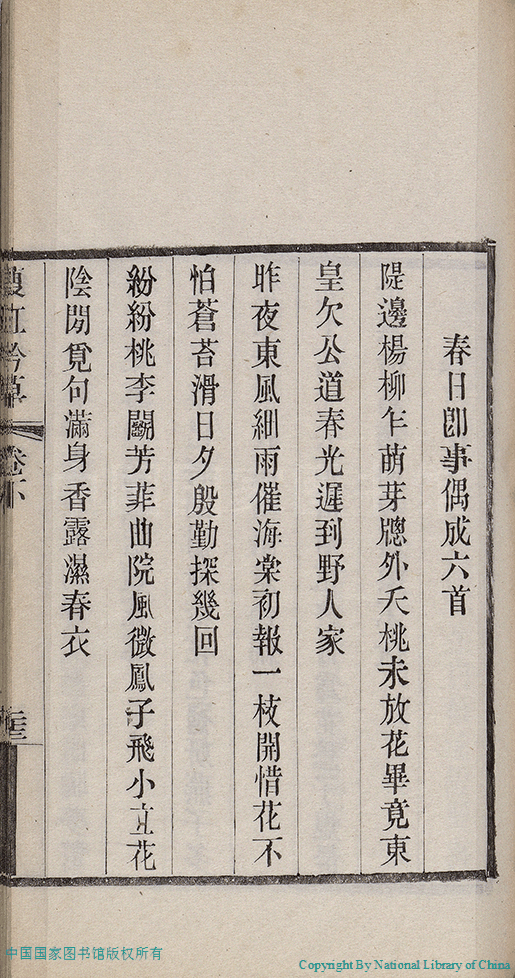 春日卽事偶成六首
隄邊楊柳乍萌芽牕外夭桃未放花畢竟東
皇欠公道春光遲到野人家
昨夜東風細雨催海棠初報一枝開惜花不
怕蒼苔滑日夕殷勤探幾囘
紛紛桃李鬭芳菲曲院風微鳳子飛小立花
陰閒覓句滿身香露濕春衣
吟草 卷下
中国国家图书馆版权所有
Copyright By National Library of China